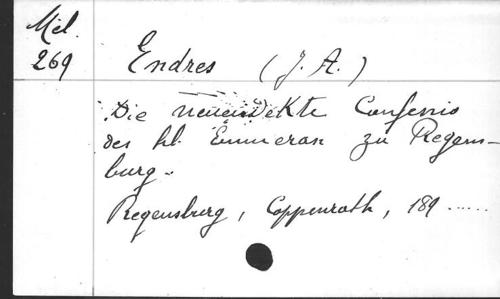 Mél.
269
Endres (J. A.)
Die neuendekte Confessio
des hl. Emmeran zu Regens-
burg.
Regensburg, Coppenrath, 189......